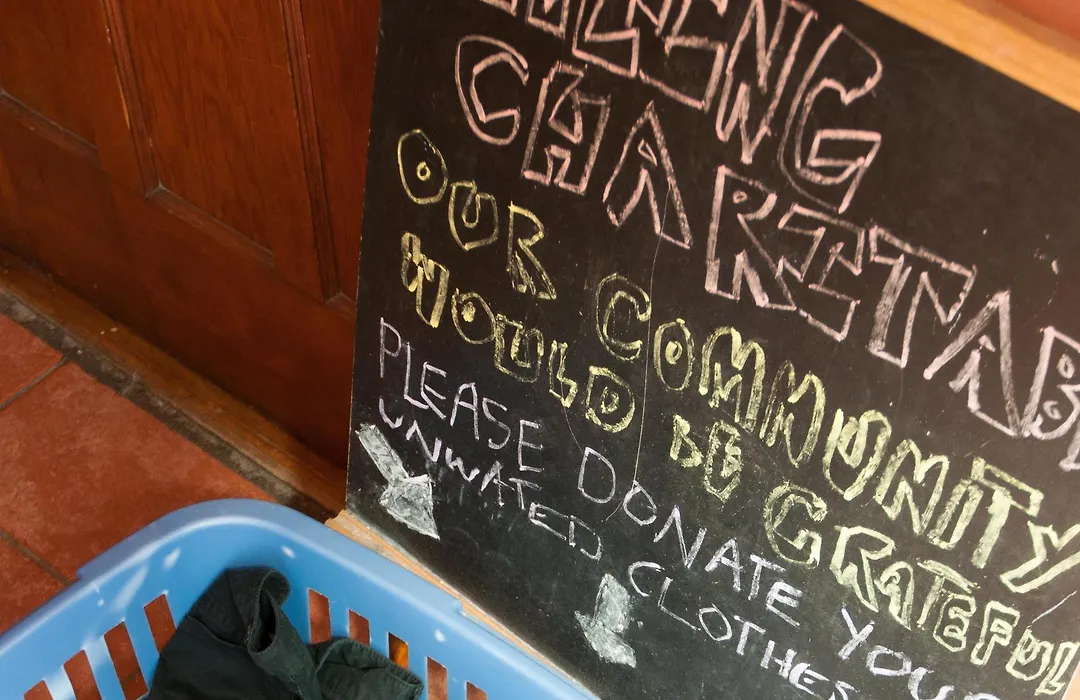 ELING
CHARITAB
OUR COMMUNITY
WOULD BE GRATEFUL
PLEASE DONATE YOUR
UNWATED CLOTHES